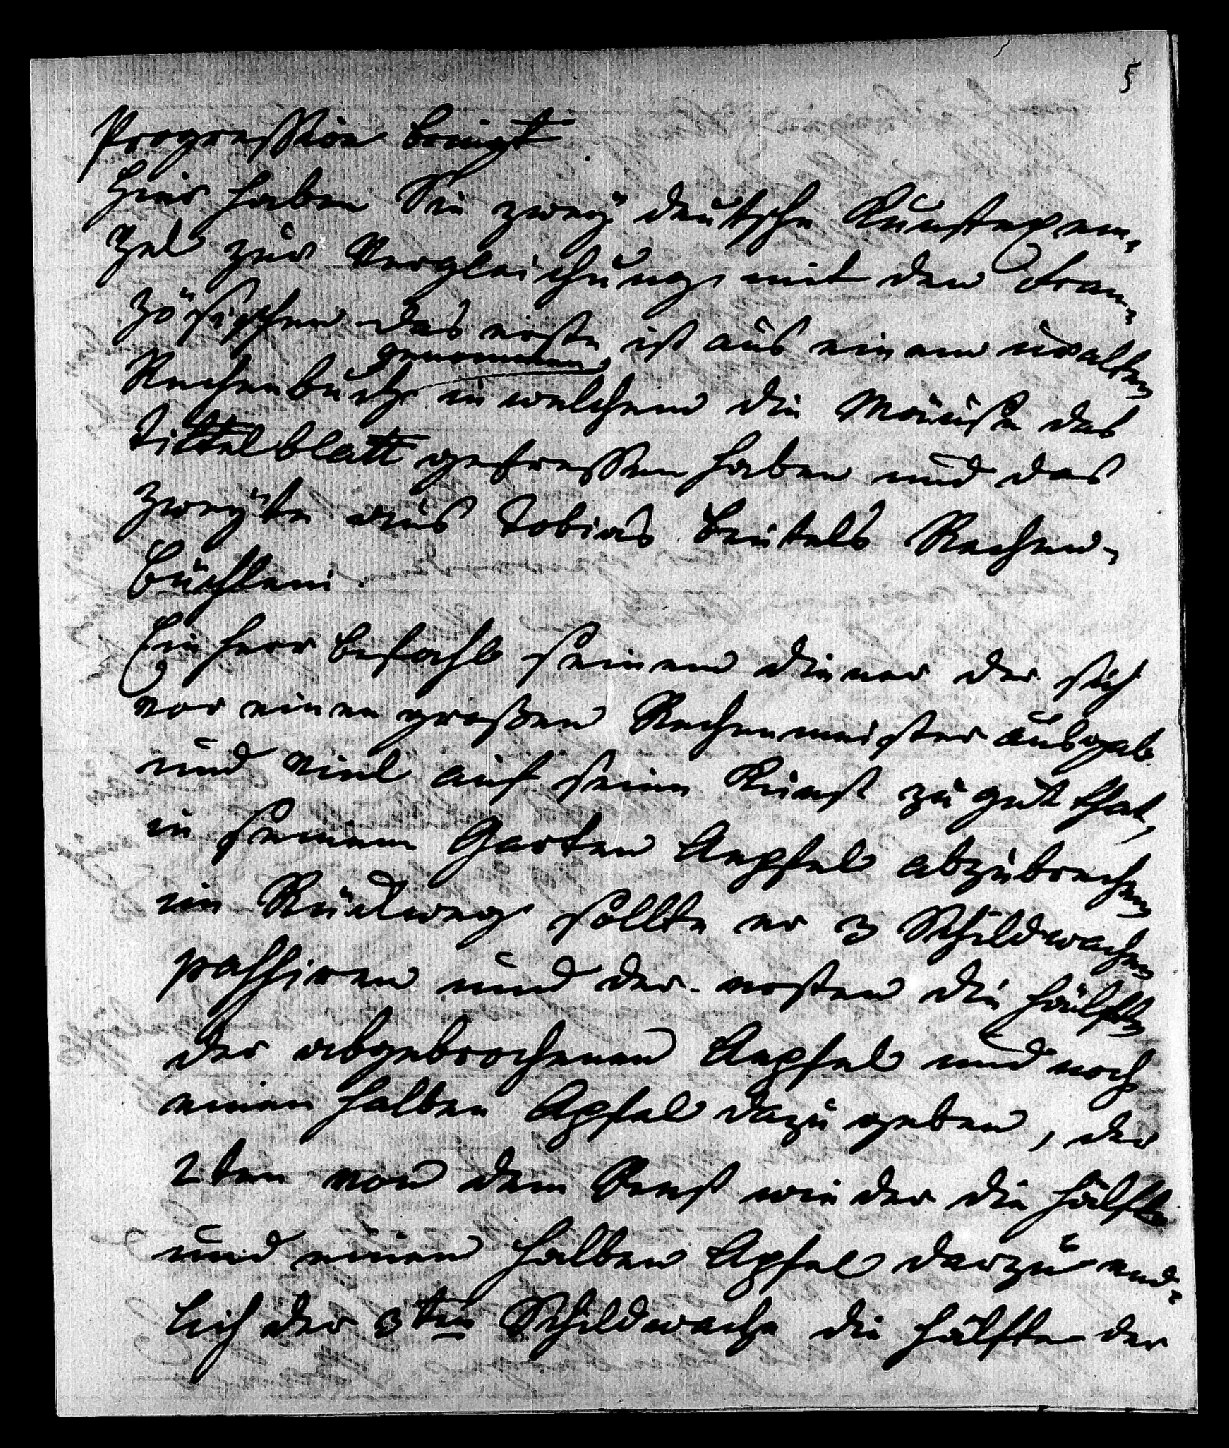 5
Progression bringt.
Hier haben Sie zwey deutsche Kunstexem-
pel zur Vergleichung mit den Fran-
zösischen das erste ist aus einem uralten
genommen
Rechenbuch in welchem die Mäuse das
Tittelblatt gefressen haben und das
zweyte aus Tobias Beutels Rechen-
büchlein.
Ein Herr befahl seinem diener der sich
vor einen großen Rechenmeister ausgab
und viel auf seine Kunst zu gut that,
in seinem Garten Aepfel abzubrechen
im Rückweg sollte er 3 Schildwachen
passiren und der ersten die Hälfte
der abgebrochenen Aepfel und noch
einen halben Apfel dazu geben, der
2ten von dem Rest wieder die Hälfte
und einen halben Apfel darzu end-
lich der 3ten Schildwache die Hälfte der